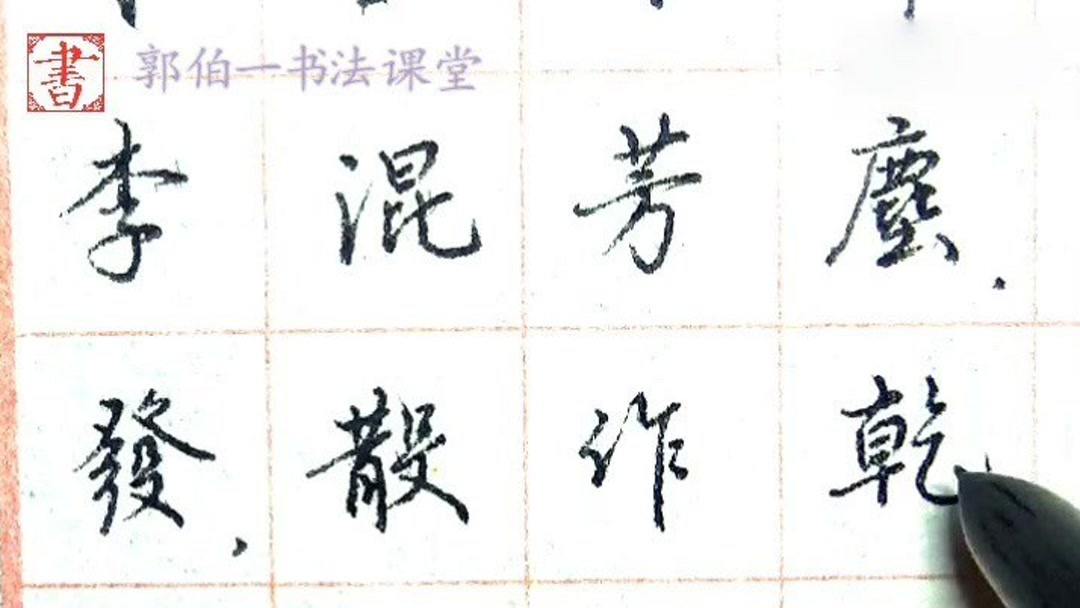 書
郭伯一书法课堂
李混芳塵.
發,散作乾